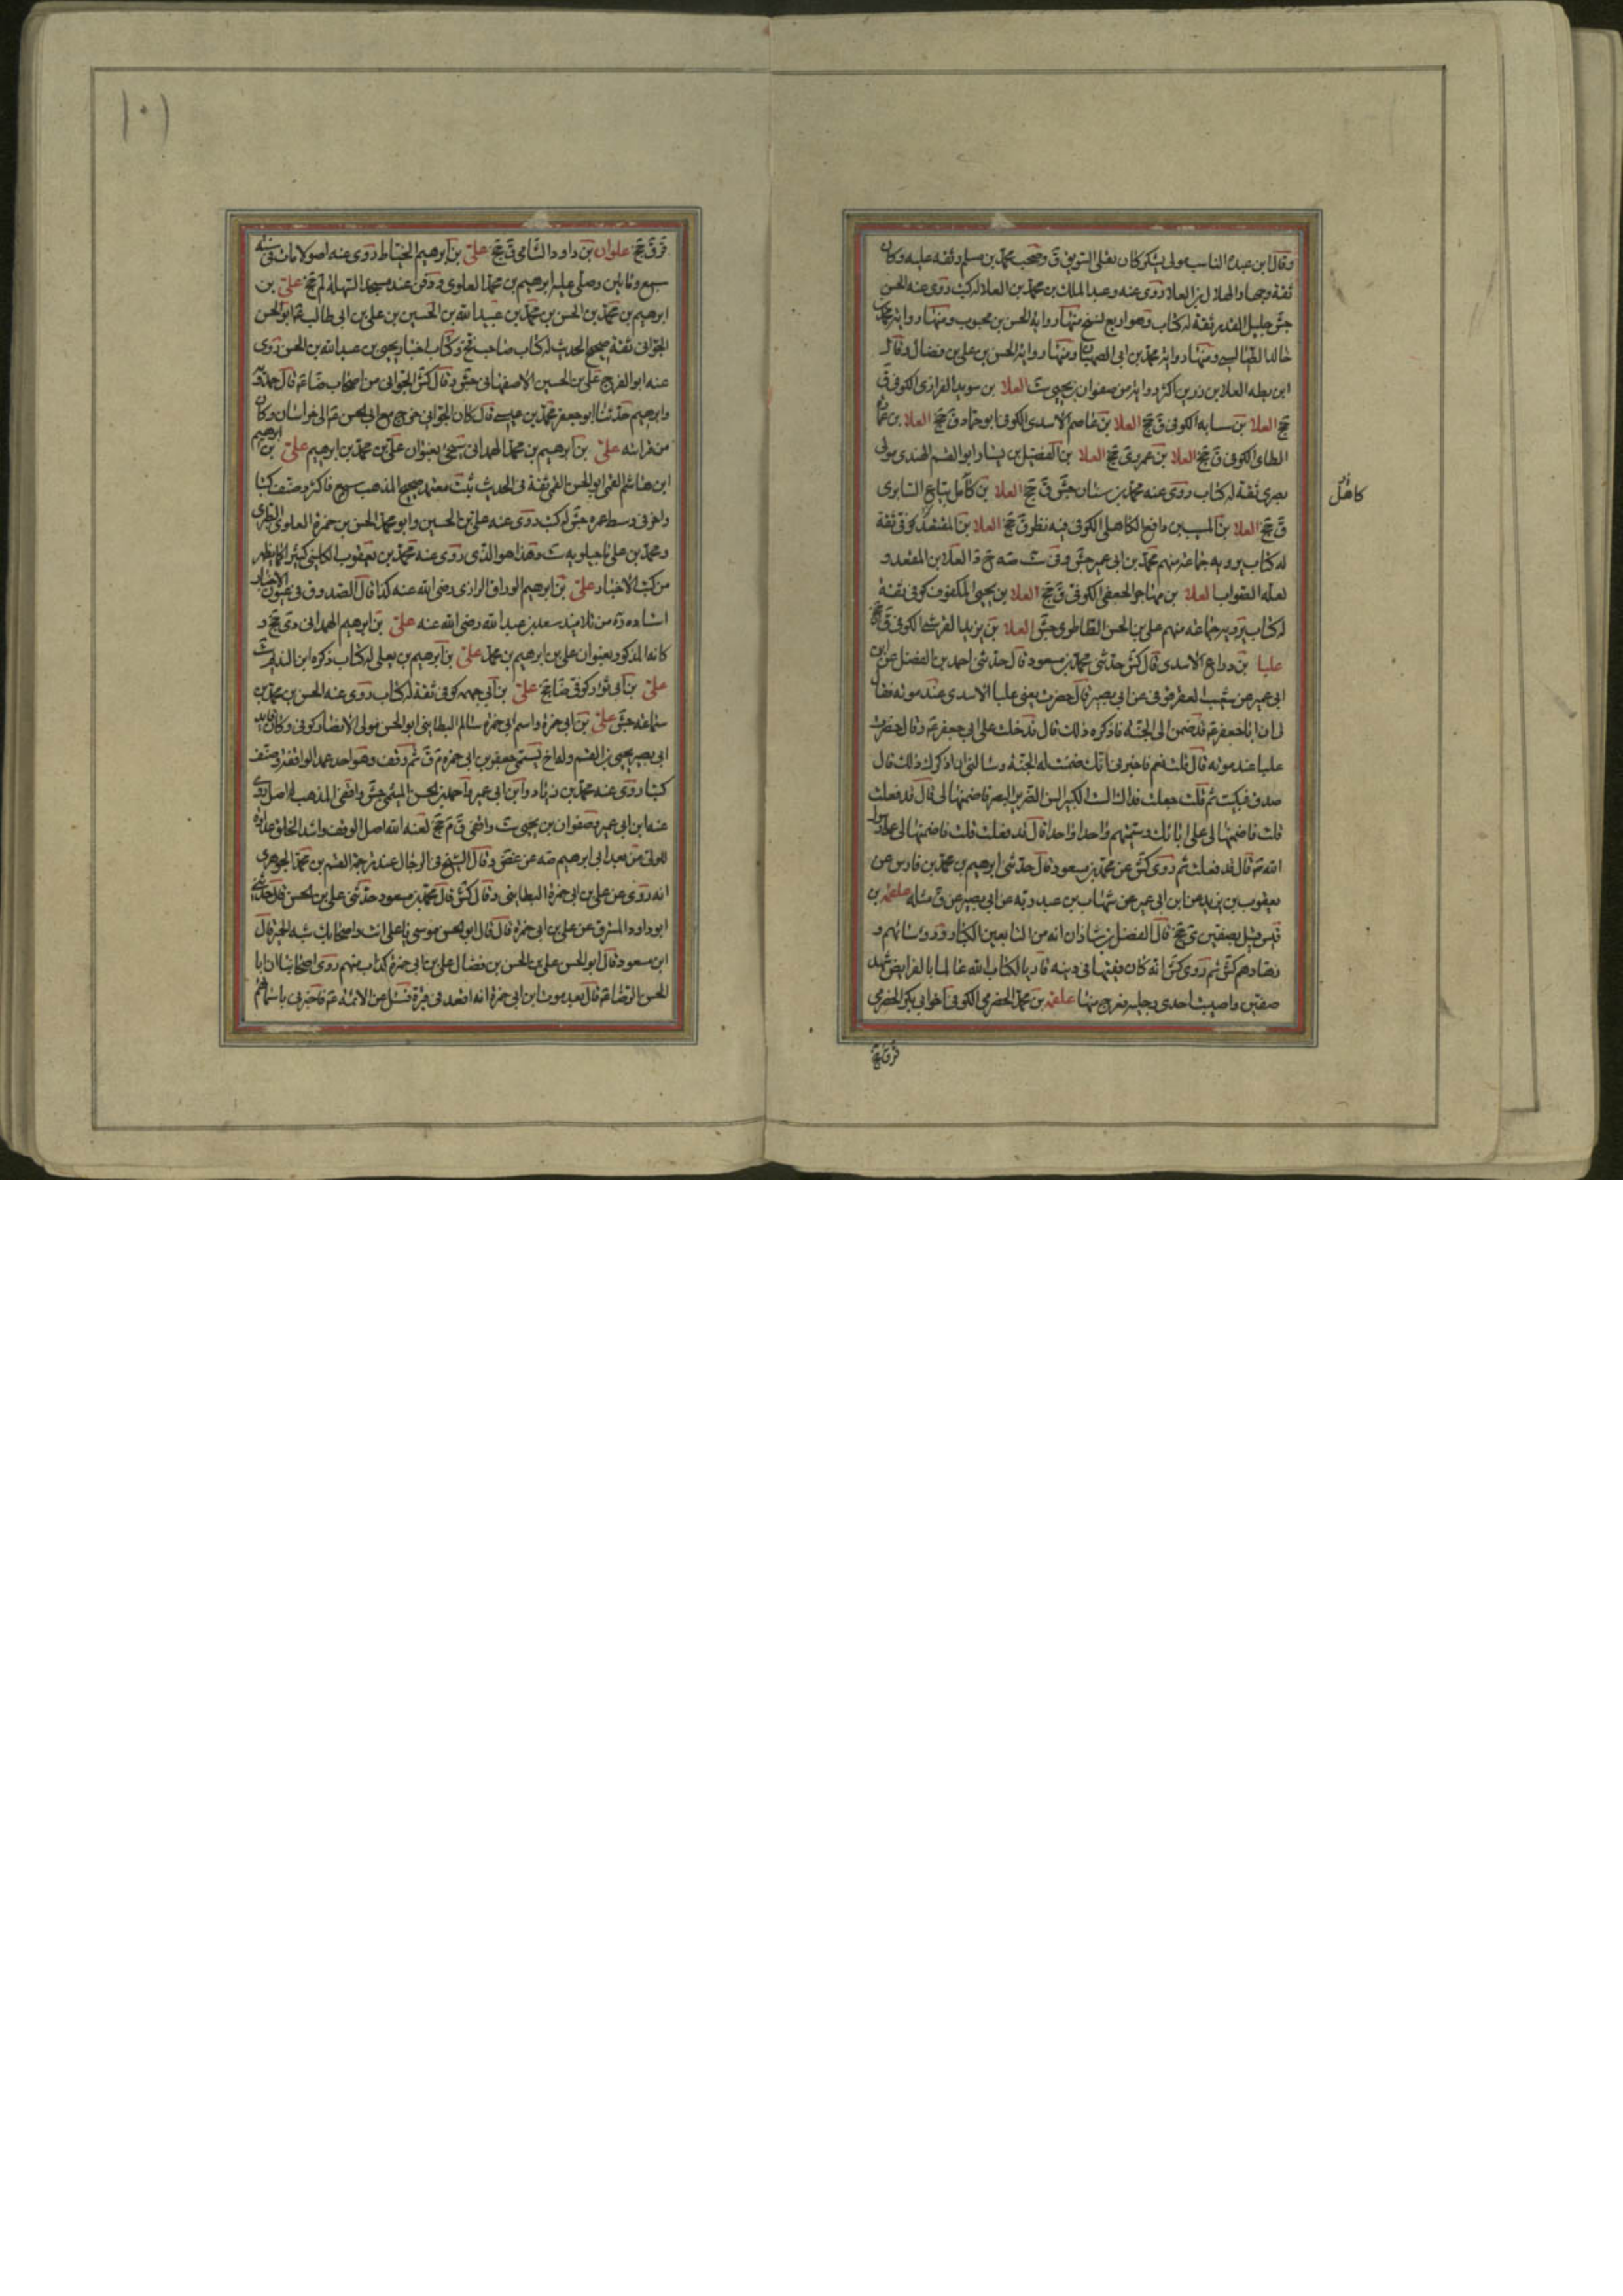 وقال ابن عبدة الناسب مولى يشكر كان يقلي السويق ق وصحب محمد بن مسلم وفقه عليه وكان
ثقة وجها والهلال بن العلا روى عنه وعبد الملك بن محمد بن العلا له كتب روى عنه الحسن
جش جليل القدر ثقة له كتاب وهو اربع نسخ منها رواية الحسن بن محبوب ومنها رواية محمد بن
خالد الطيالسي ومنها رواية محمد بن ابي الصهبان ومنها رواية الحسن بن علي بن فضال وقال
ابن بطه العلا بن رزين اكثر رواية من صفوان بن يحيى ست العلا بن سويد الفزازى الكوفى ق
جخ العلا بن سيابه الكوفى ق جخ العلا بن عاصم الاسدى الكوفى ابو حماد ق جخ العلا بن
الطاى الكوفى ق جخ العلا بن عمرو ى جخ العلا بن الفضيل بن يسار ابو القسم الهندى مولى
بصرى ثقة له كتاب روى عنه محمد بن سنان جش ق جخ العلا بن كامل بياع السابرى
كاهل
ق جخ العلا بن المسيب بن رافع الكاهلى الكوفى فيه نظر ق جخ العلا بن المقعد كوفى ثقة
له كتاب يرويه جماعة منهم محمد بن ابى عمير جش وفى ست صه العلا بن المقعد و
لعله الصواب العلا بن يحيى المكفوف كوفى ثقة
له كتاب يرويه جماعة منهم على بن الحسن الطاطرى جش العلا بن يزيد القرشى الكوفى ق جخ
علبا بن دراع الاسدى قال كش حدثنى محمد بن مسعود قال حدثنى احمد بن الفضل عن ابن
ابى عمير عن شعيب العقرقوفى عن ابى بصير قال حضرت يعنى علبا الاسدى عند موته فقا
لى ان ابا جعفر ع قد ضمن لى الجنة فاذكره ذلك قال فدخلت على ابى جعفر ع وقال حضرت
علبا عند موته قال قلت نعم فاخبرنى انك ضمنت له الجنة وسالنى ان اذكرك ذلك قال
صدق فبكيت ثم قلت جعلت فداك الست الكبير السن الضرير البصر فاضمنها لى قال قد فعلت
قلت فاضمنها لى على ابائك وسميتهم واحدا واحدا قال قد فعلت قلت فاضمنها لى على رسول
الله ص قال قد فعلت ثم روى كش عن محمد بن مسعود قال حدثنى ابرهيم بن محمد بن فارس عن
يعقوب بن يزيد عن ابن ابى عمير عن شهاب بن عبد ربه عن ابى بصير عن ق مثله علقمه بن
قيس قتل بصفين ى جخ قال الفضل بن شاذان انه من التابعين الكبار ورؤسائهم و
زهادهم كش ثم روى كش انه كان فقيها فى دينه قاريا لكتاب الله عالما بالفرايض شهد
صفين واصيبت احدى رجليه فعرج منها علقمه بن محمد الحضرمى الكوفى اخو ابى بكر الحضرمى
قر ق جخ
١٠١
قر ق جخ علوان بن داود الشامى ق جخ على بن ابرهيم الخياط روى عنه اصولا مات فى سنة
سبع وماتين وصلى عليه ابرهيم بن محمد العلوى ودفن عند مسجد السهلة لم جخ على بن
ابرهيم بن محمد بن الحسن بن محمد بن عبيد الله بن الحسين بن على بن ابى طالب ع ابو الحسن
الجوانى ثقة صحيح الحديث له كتاب صاحب فخ وكتاب اخبار يحيى بن عبد الله بن الحسن روى
عنه ابو الفرج على بن الحسين الاصفهانى جش وقال كش الجوانى من اصحاب ضا ع قال حمدويه
وابرهيم حدثنا ابو جعفر محمد بن عيسى قال كان الجوانى خرج مع ابى الحسن ع الى خراسان وكان
من قرابته على بن ابرهيم بن محمد الهمدانى سيجئ بعنوان على بن محمد بن ابرهيم على بن ابرهيم
ابن هاشم القمى ابو الحسن القمى ثقة فى الحديث ثبت معتمد صحيح المذهب سمع فاكثر وصنف كتبا
واضر فى وسط عمره جش له كتب روى عنه على بن الحسين وابو محمد الحسن بن حمزة العلوى الطبرى
ومحمد بن على ماجيلويه ست وهذا هو الذى روى عنه محمد بن يعقوب الكلينى كثيرا كما يظهر
من كتب الاخبار على بن ابرهيم الوراق الرازى رضى الله عنه كذا قال الصدوق فى عيون الاخبار
استاده ره من تلاميذ سعد بن عبد الله رضى الله عنه على بن ابرهيم الهمدانى دى جخ و
كانه المذكور بعنوان على بن ابرهيم بن محمد على بن ابرهيم بن يعلى له كتاب ذكره ابن النديم ست
على بن ابى ثوار كوفى ضا جخ على بن ابى جهمه كوفى ثقة له كتاب روى عنه الحسن بن محمد بن
سماعه جش على بن ابى حمزة واسم ابى حمزة سالم البطاينى ابو الحسن مولى الانصار كوفى وكان قايد
ابى بصير يحيى بن القسم وله اخ يسمى جعفر بن ابى حمزة م ق ثم وقف وهو احد عمد الواقفة وصنف
كتبا روى عنه محمد بن زياد وابن ابى عمير واحمد بن الحسن الميثمى جش واقفى المذهب له اصل روى
عنه ابن ابى عمير وصفوان بن يحيى ست واقفى ق م جخ لعنه الله اصل الوقف واشد الخلق عداوة
للولى من بعد ابى ابرهيم صه عن غض وقال الشيخ فى الرجال عند ترجمة القسم بن محمد الجوهرى
انه روى عن على بن ابى حمزة البطاينى وقال كش قال محمد بن مسعود حدثنى على بن الحسن قال حدثنى
ابو داود المسترق عن على بن ابى حمزة قال قال ابو الحسن موسى يا على انت واصحابك شبه الحمير قال
ابن مسعود قال ابو الحسن على بن الحسن بن فضال على بن ابى حمزة كذاب متهم روى اصحابنا ان ابا
الحسن الرضا ع قال بعد موت ابن ابى حمزة انه اقعد فى قبره فسئل عن الائمة ع فاخبر باسمائهم